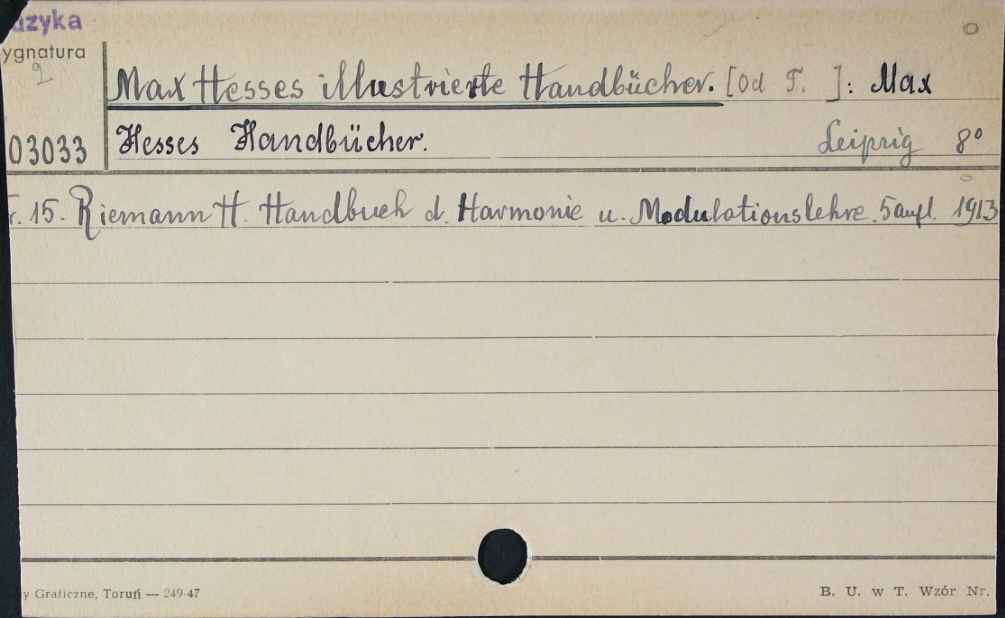 uzyka
ygnatura
Max Hesses illustrierte Handbücher. [Od T. ]: Max
03033 Hesses Handbücher. Leipzig 8°
r. 15. Riemann H. Handbuch d. Harmonie u. Modulationslehre. 5 aufl. 1913
y Graficzne, Toruń — 249-47 B. U. w T. Wzór Nr.